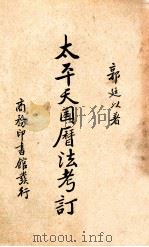 郭廷以著
太平天囯曆法考訂
商務印書館發行